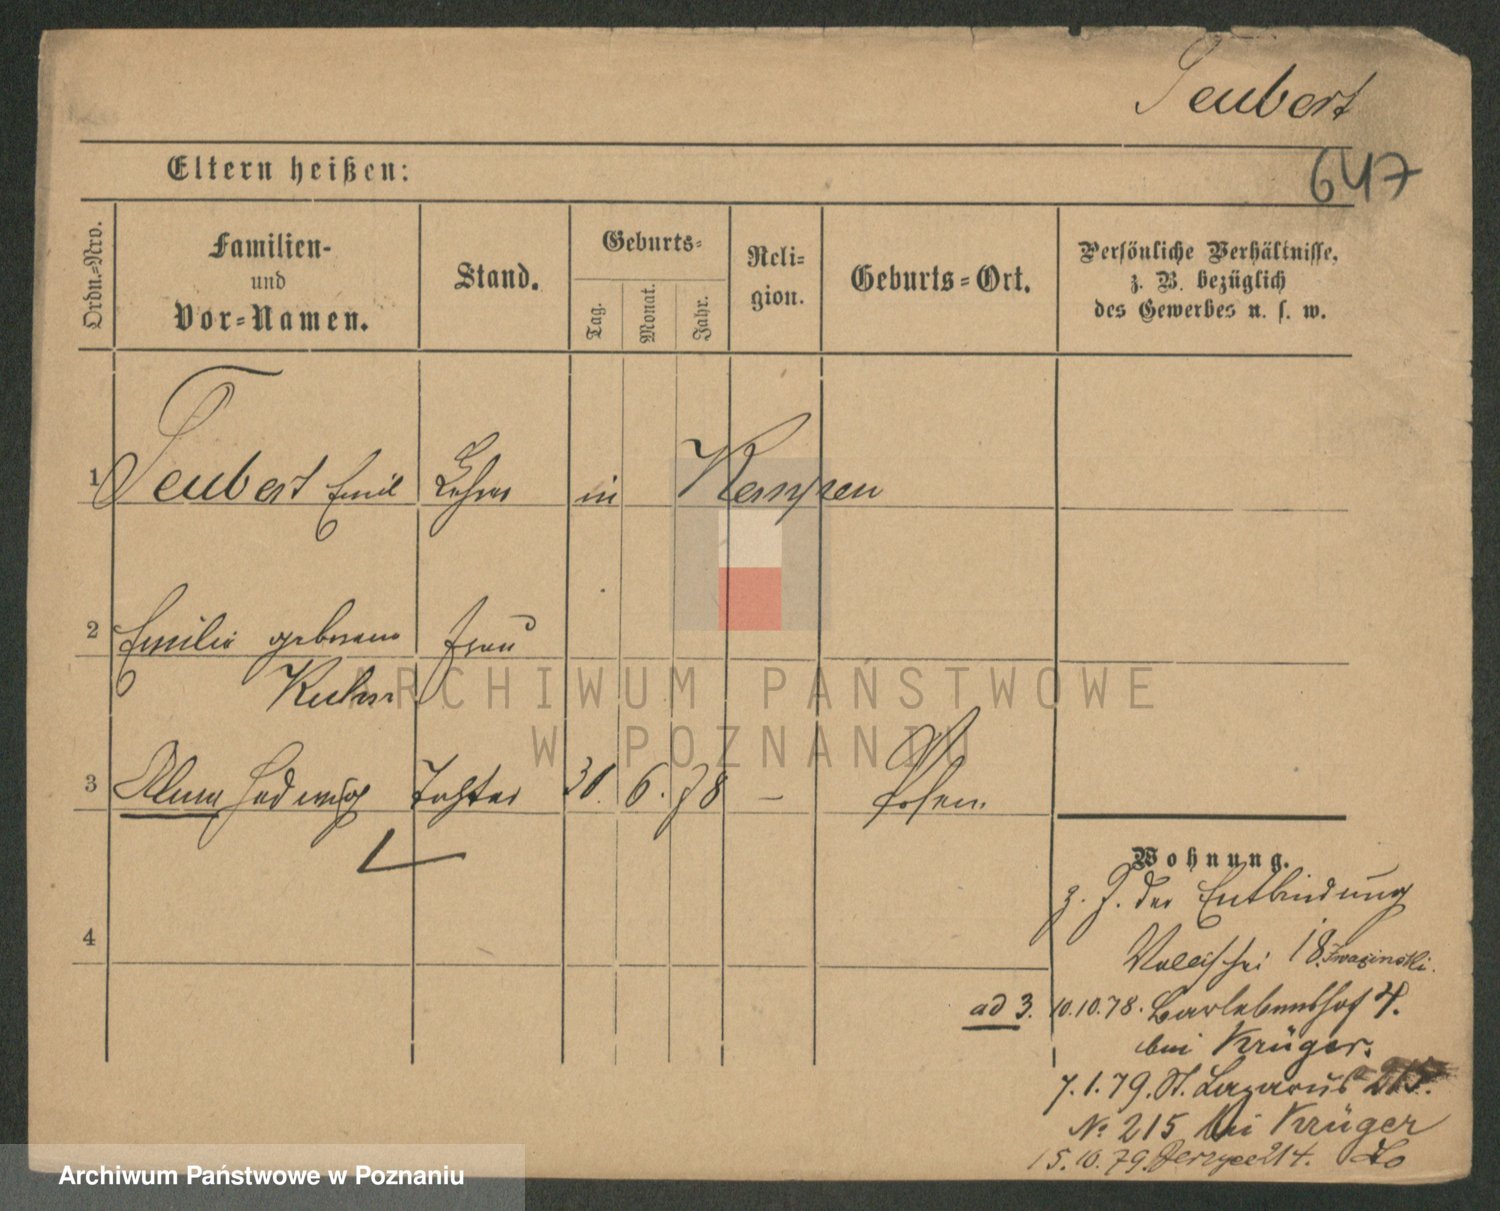 Teubert
647
Eltern heißen:
Ordn.-Nro.
Familien-
und
Vor-Namen.
Stand.
Geburts-
Tag.
Monat.
Jahr.
Reli-
gion.
Geburts-Ort.
Persönliche Verhältnisse,
z. B. bezüglich
des Gewerbes u. s. w.
1 Teubert Emil Lehrer in Kempen
2 Emilie geborene Frau
Kuhn
3 Alma Hedwig Tochter 6. 78 — Posen.
4
Wohnung.
z. Z. der Entbindung
Wallischei 18.
ad 3. 10.10.78. Barlebenshof 4.
bei Krüger.
7.1.79. St. Lazarus 215.
No 215 bei Krüger
15.10.79. Jerzyce 214.
ARCHIWUM PAŃSTWOWE
W POZNANIU
Archiwum Państwowe w Poznaniu